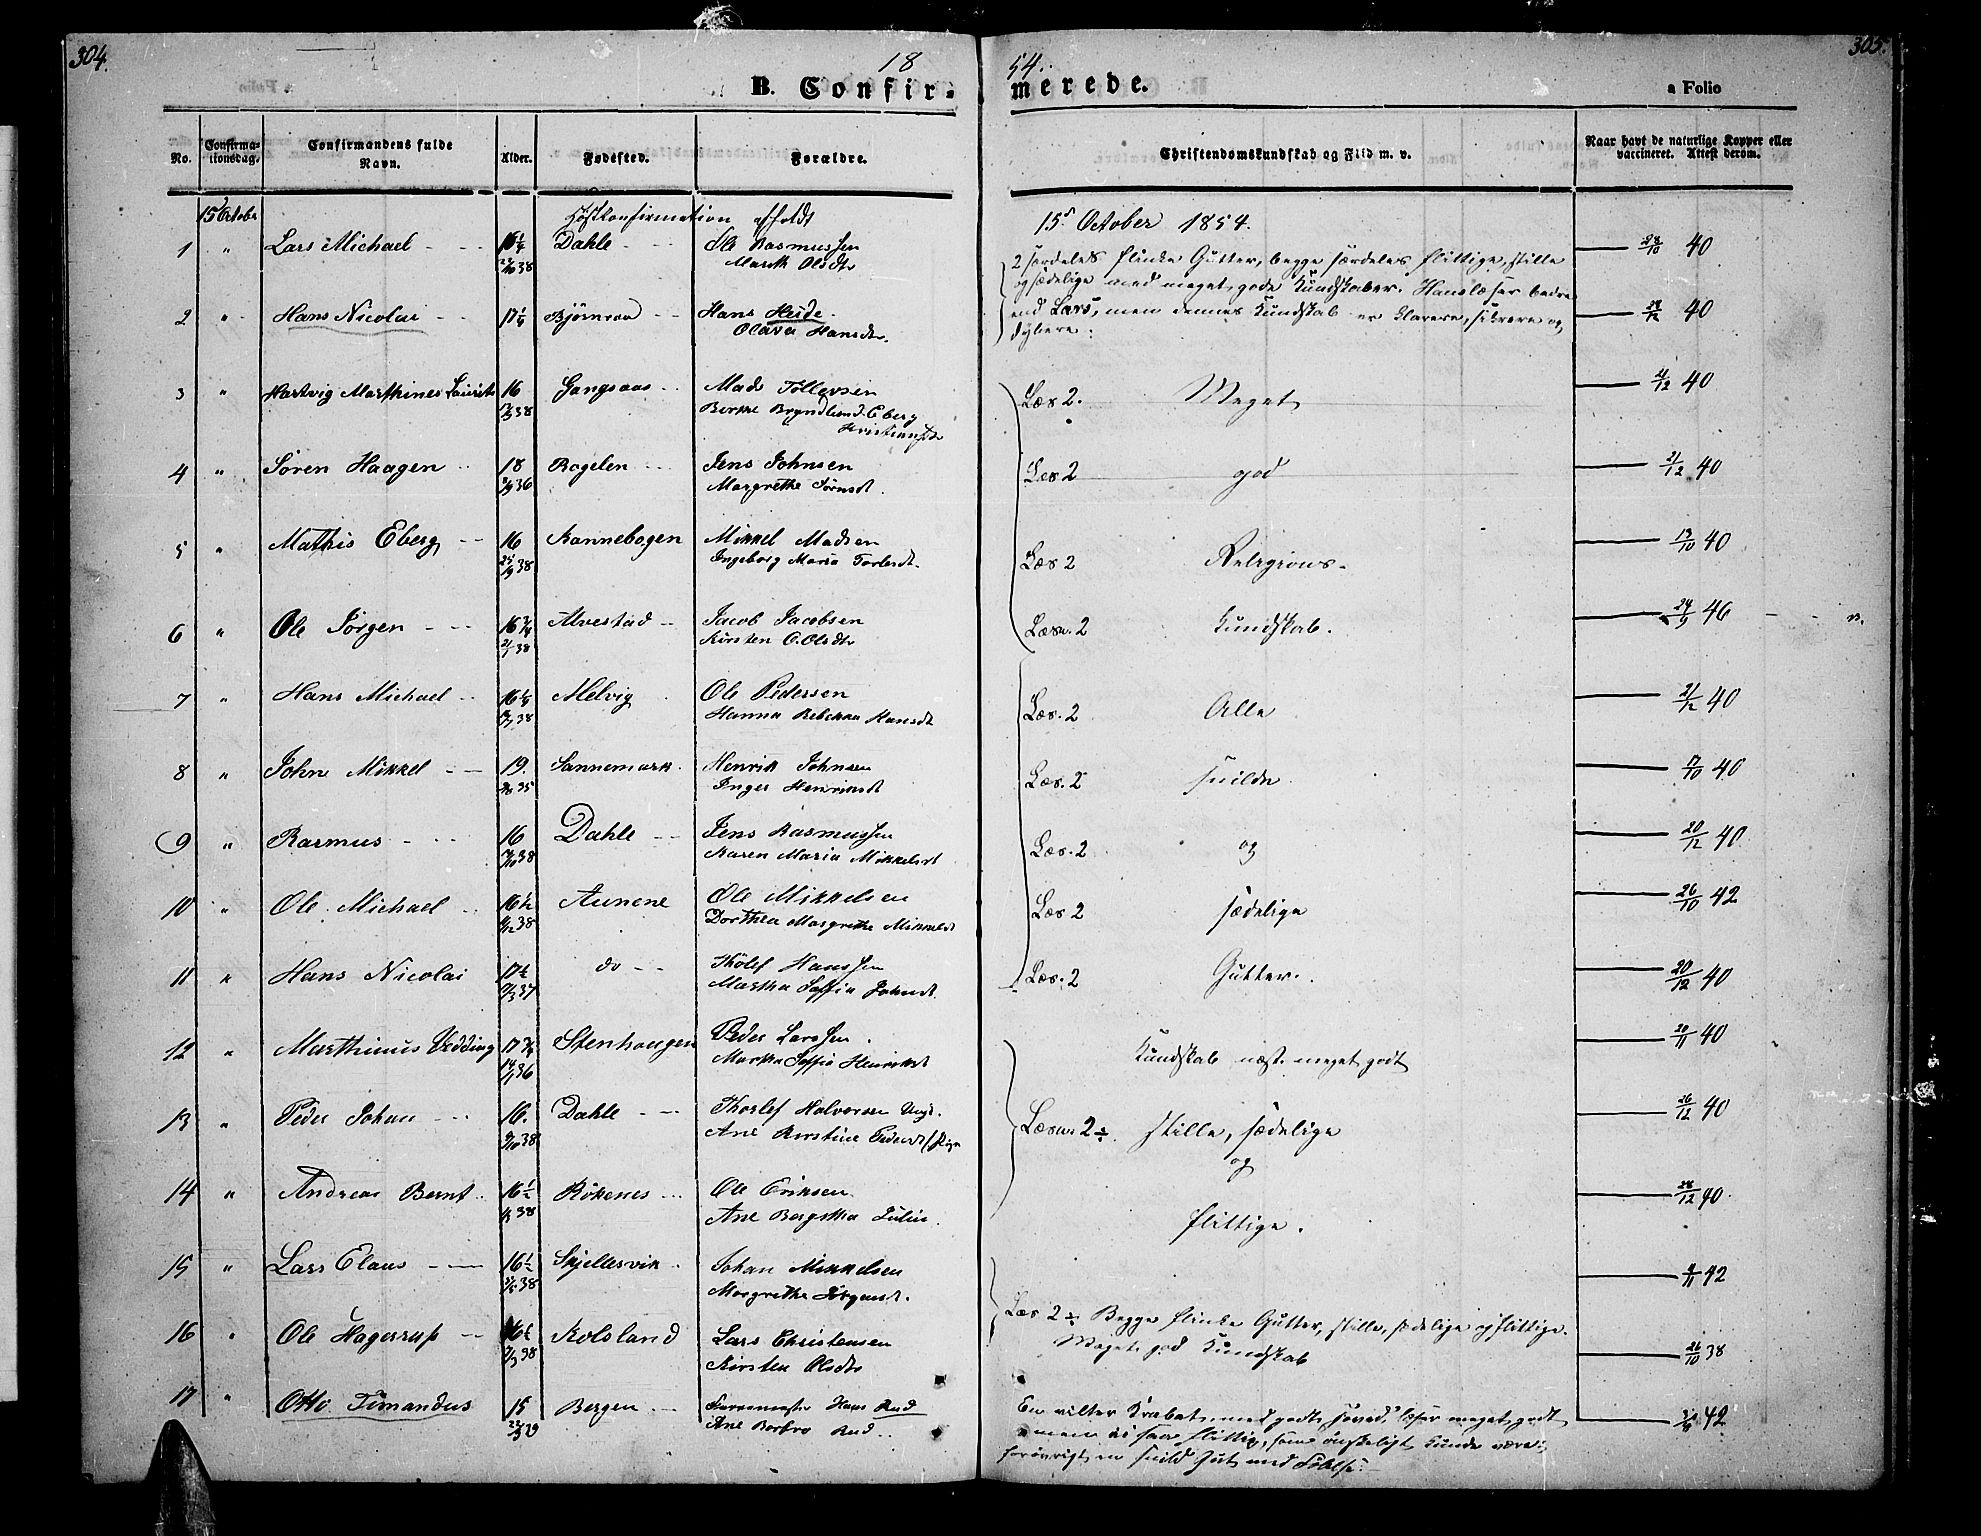 304.
18
54.
305.
B. Confir-
merede.
a Folio
No.
Confirma-
tionsdag.
Confirmandens fulde
Navn.
Alder.
Fødested.
Forældre.
Christendomskundskab og Flid m. v.
Naar havt de naturlige Kopper eller
vaccineret. Attest derom.
15 Octobr
Høstkonfirmation afholdt
15de October 1854.
1 " Lars Michael - - 16½ Dahle - - Ole Rasmussen
38 Marith Olsdtr
28/10 40
2 særdeles flinke Gutter, begge særdeles flittige, stille
og sædelige med meget gode Kundskaber. Hans læser bedre
end Lars, men dennes Kundskab er klarere, sikrere og
dybere.
2 " Hans Nicolai - - 17¼ Bjørnraa - - Hans Heide -
Olava Hansdtr.
40
3 " Hartvig Marthines Laurits 16 Gangsaas - - Mads Tollevsen
38 Berthe Eberg
Kristiansdtr
Læs 2. Meget
/12 40
4 " Søren Haagen - - 18 Bogelen - - Jens Johnsen
36 Margrethe Sørnsdt.
Læs 2 god
21/12 40
5 " Mathis Eberg - - 16 Kannebogen Mikkel Madsen
38 Ingeborg Maria Torlesdt.
Læs 2 Religions-
13/10 40
6 " Ole Jørgen - - - 16¾ Alvestad - - Jacob Jacobsen
38 Kirsten O. Olsdtr
Læsn. 2 Kundskab.
24/9 46
7 " Hans Michael - - 16¼ Melvig Ole Pedersen
38 Hanna Rebekka Hansdt
Læs. 2 Alle
21/12 40
8 " John Mikkel - - 19. Sannemark. Henrik Johnsen
35 Inger Henriksdt
Læs. 2 snilde
/10 40
9 " Rasmus - - - 16 Dahle - - Jens Rasmussen
38 Karen Maria Mikkelsdt
Læs. 2 og
20/12 40
10 " Ole Michael - - 16½ Aunene Ole Mikkelsen
38 Dorthea Margrethe Mikkelsdt
Læs 2 sædelige
26/10 42
11 " Hans Nicolai 17½ do - - Thølef Hanssen
37 Martha Soffia Johnsdt.
Læs. 2 Gutter.
20/12 40
12 " Marthinus Vedding 17¾ Stenhaugen Peder Larssen
14/1 36 Martha Soffia Henriksdt
Kundskab næst. meget godt
20/11 40
13 " Peder Johan - - - 16. Dahle - - Thorlef Halvorsen Ungk.
38 Ane Kirstine Pedersdt Pige
Læsn. 2÷ stille, sædelige
og
26/12 40
14 " Andreas Bernt - - 16½ Røkenes - - Ole Eriksen
38 Ane Bergitha Julin.
flittige.
28/12 40.
15 " Lars Elaus - - 16½ Skjellesvik - Johan Mikkelsen
38 Margrethe Jørgensdt.
/11 42
Læs 2÷ Begge flinke Gutter, stille, sædelige og flittige.
Meget god Kundskab
16 " Ole Hagerup - - 16½ Kolsland Lars Christensen
38 Kirsten Olsdtr
26/10 38
17 " Otto Timandus 15 Bergen - - Hans Rud
Ane Barbro Rud - -
En vilter Krabat, med godt Hoved, læser meget godt
men ei saa flittig, som ønskeligt kunde være;
forøvrigt en snild Gut med Følelse.
42